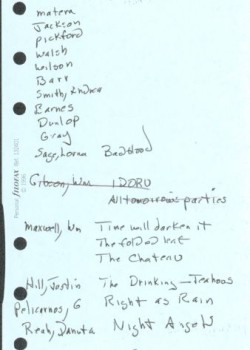 matera
Jackson
pickford
walsh
wilson
Barr
Smith, Andrea
Barnes
Dunlop
Gray
Sage, Lorna Bad blood
Gibson, Wm IDORU
All tomorrow's parties
maxwell, Wm Time will darken it
The folded leaf
The Chateau
Hill, Justin The Drinking
Pelicanos, G Right as Rain
Reah, Danuta Night Angels